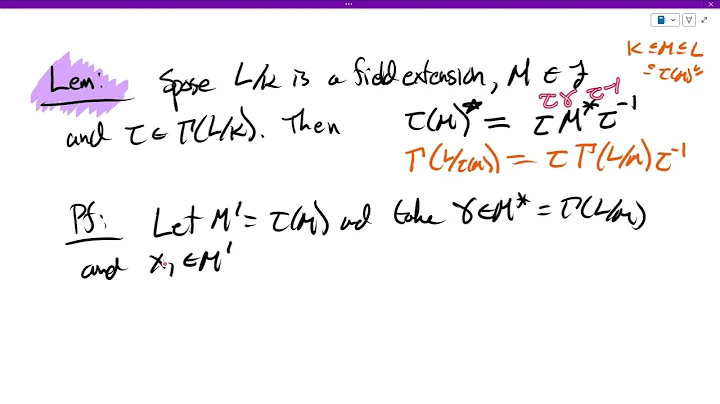 K ≤ M ≤ L
≤ τ(M) ≤
Lem: Spose L/K is a field extension, M ∈ F
τγτ⁻¹
and τ ∈ Γ(L/K). Then τ(M)* = τM*τ⁻¹
Γ(L/τ(M)) = τΓ(L/M)τ⁻¹
Pf: Let M' = τ(M) and take γ∈M* = Γ(L/M)
and x₁ ∈ M'